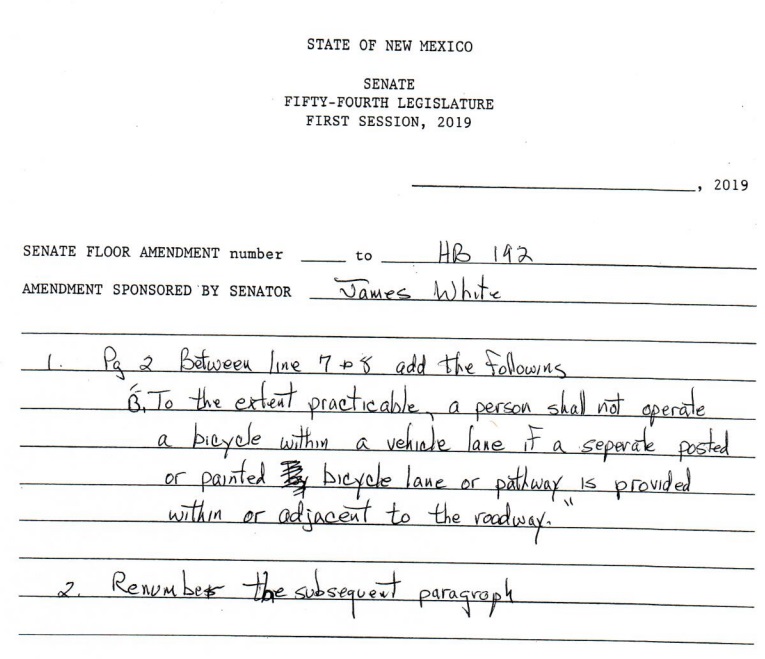 STATE OF NEW MEXICO
SENATE
FIFTY-FOURTH LEGISLATURE
FIRST SESSION, 2019
, 2019
SENATE FLOOR AMENDMENT number to HB 192
AMENDMENT SPONSORED BY SENATOR James White
1. Pg 2 Between line 7 & 8 add the following
"B. To the extent practicable, a person shall not operate
a bicycle within a vehicle lane if a seperate posted
or painted bicycle lane or pathway is provided
within or adjacent to the roadway."
2. Renumber the subsequent paragraph